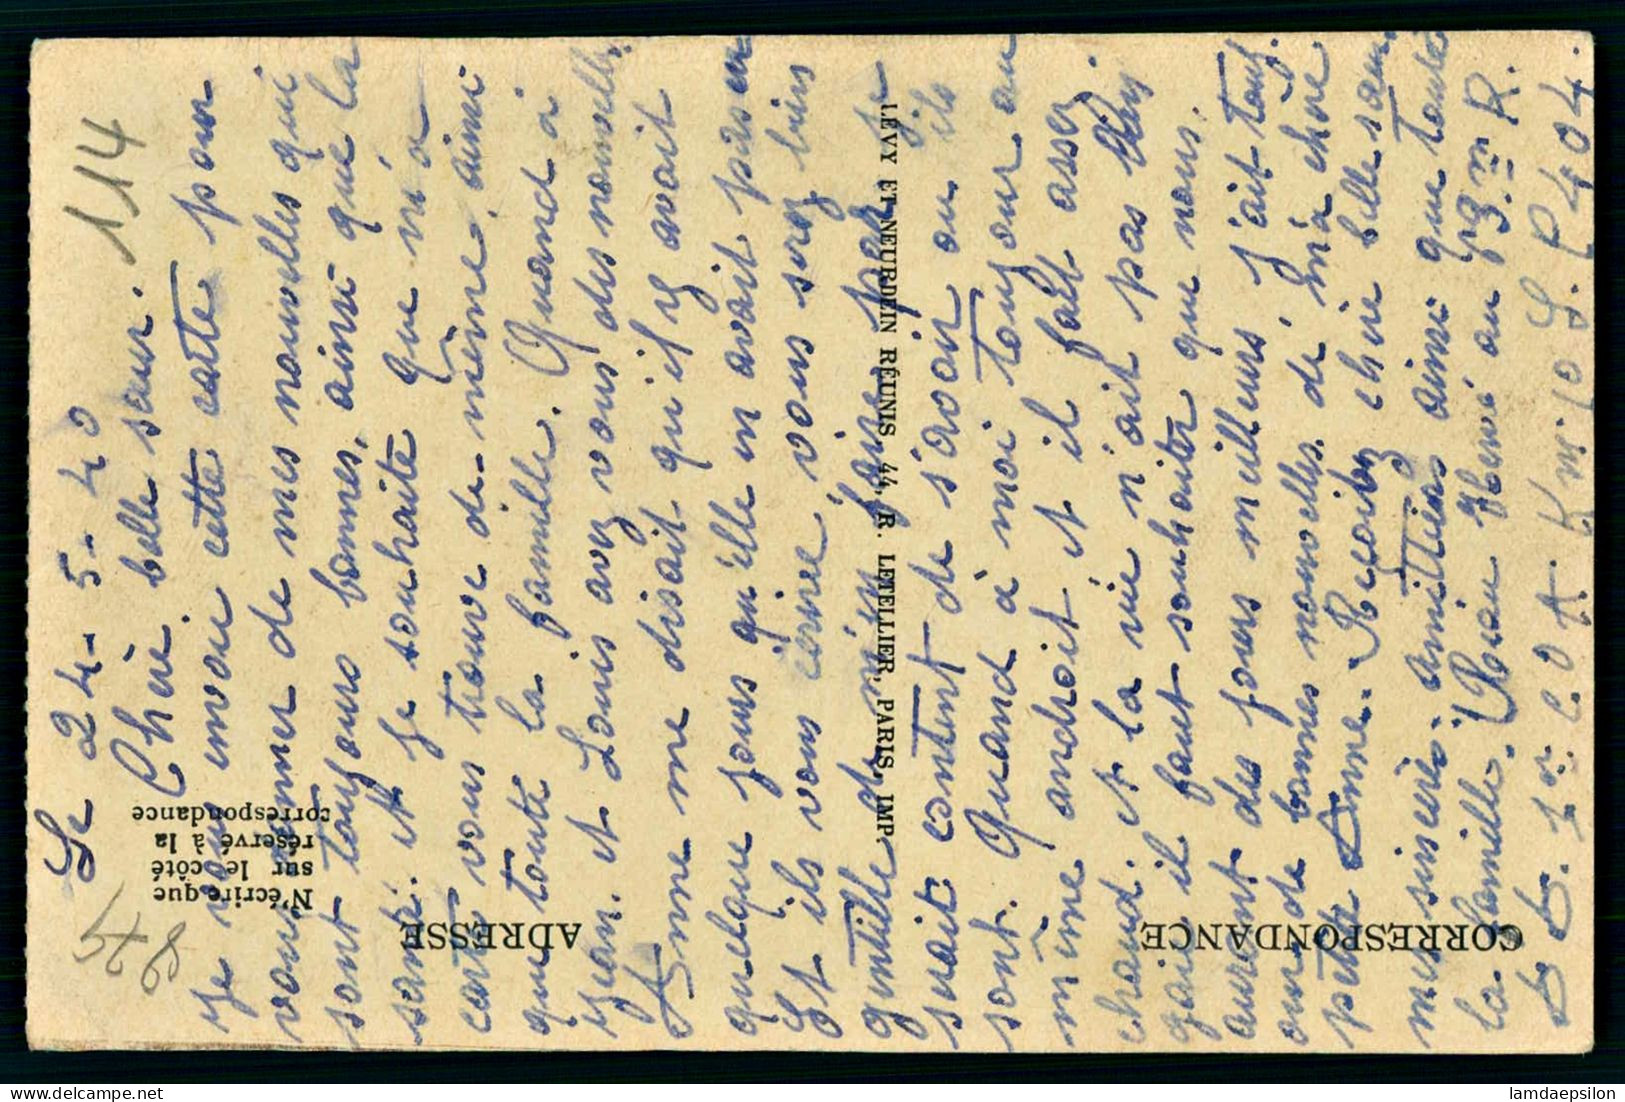 Le 24-5-40
Chère belle sœur.
Je vous envoi cette carte pour
vous donner de mes nouvelles qui
sont toujours bonnes, ainsi que la
santé. et je souhaite que m'a
carte vous trouve de même, ainsi
que toute la famille. Quand à
Jean. et Louis avez vous des nouvelles,
Anne me disait qu'il y avait
quelque jours qu'elle en avait pas eu
Et ils vous écrive, vous serez bien
gentille de m'en faire par je
serait content de s'avoir ou ils
sont. Quand à moi toujour au
même androit et il fait assez
chaud. et la vie n'ait pas bien
gaie il faut souhaiter que nous
auront des jours meilleurs j'ait touj.
ours de bonnes nouvelles de m'a chère
petite Anne. Recevez chère belle sœur
mes sincère. amittiés ainsi que toute
la famille.
114
875
N'écrire que
sur le côté
réservé à la
correspondance
ADRESSE
CORRESPONDANCE
LÉVY ET NEURDEIN RÉUNIS, 44, R. LETELLIER, PARIS, IMP.